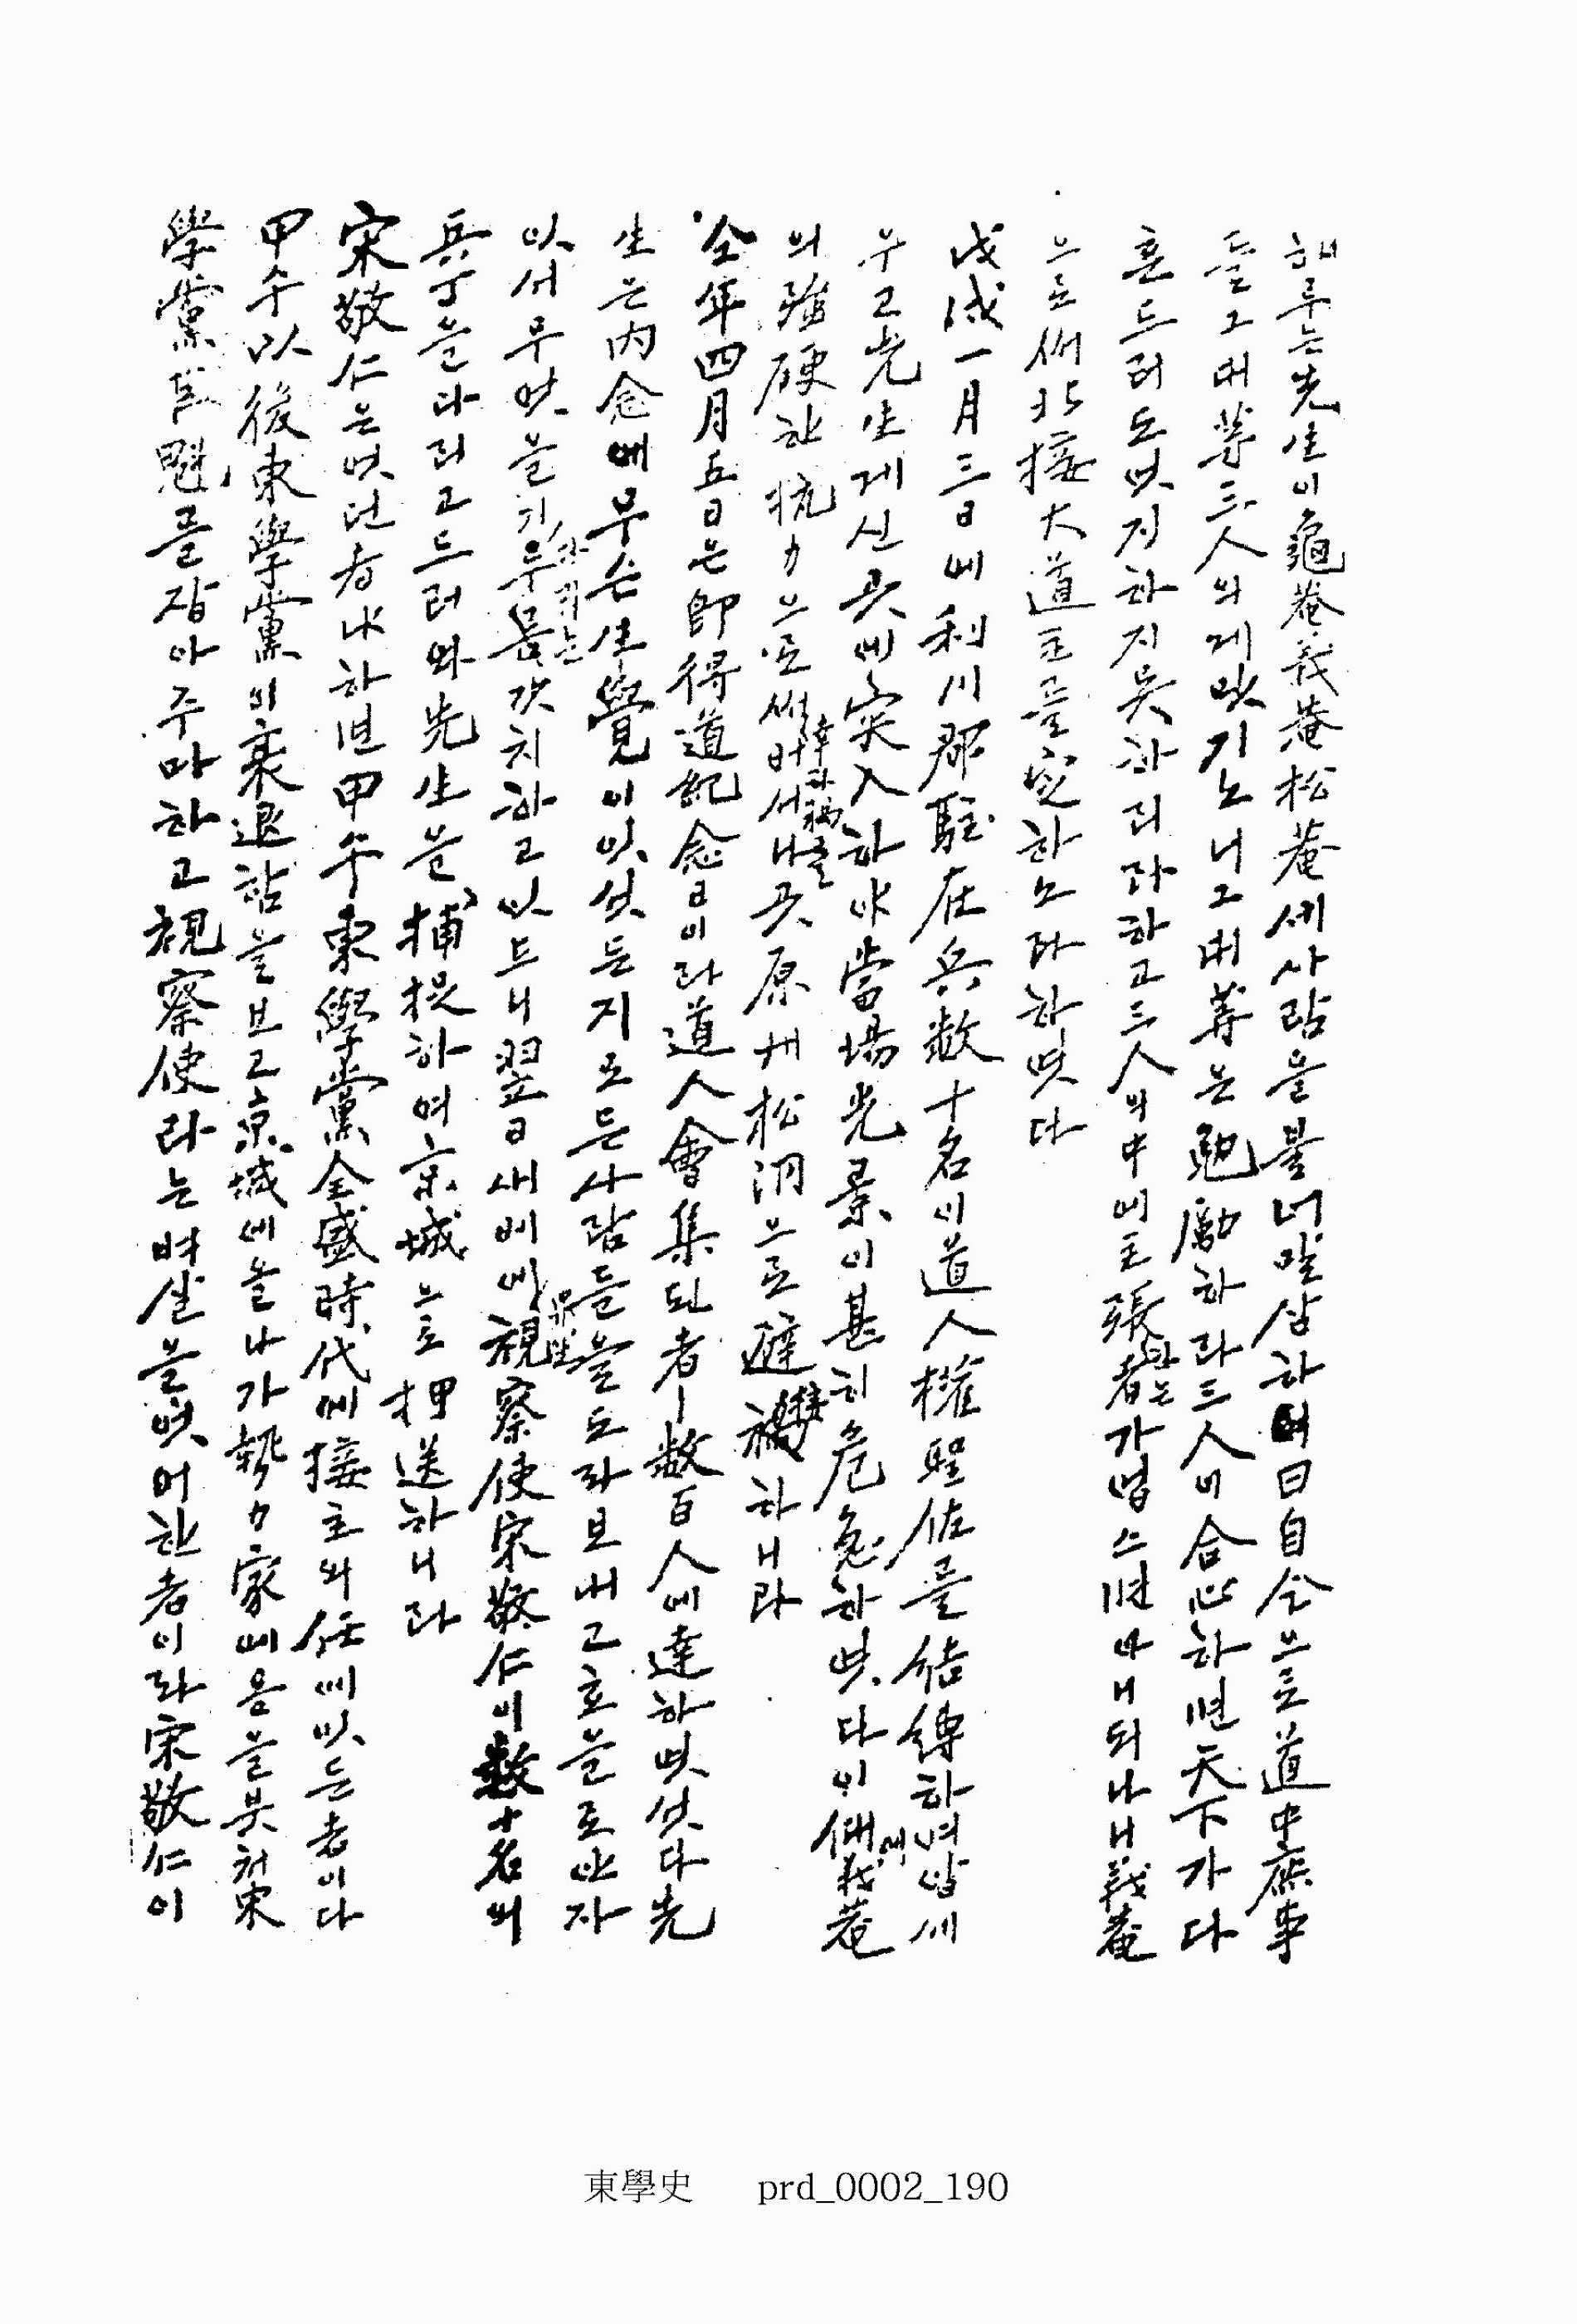 해루는 先生이 龜菴 義菴 松菴 세사람을 불너 말삼하여 曰 自今으로 道中庶事
를 그대 等 三人의게 맛기노니 그대 等은 勉勵하라 三人이 合心하면 天下가 다
흔드러도 엇지하지 못하리라 하고 三人의 中에 主張者가 업스면 아니되나니 義菴
으로써 北接大道主를 定하노라 하엿다
戊戌一月三日에 利川郡 駐在兵 數十名이 道人 權聖佐를 結縛하여 압세
우고 先生 게신 곳에 突入하야 當場 光景이 甚히 危急하엿다 이 때 義菴
의 强硬한 抗力으로써 버서나 곳 原州 松洞으로 避禍하니라
仝年四月五日은 卽 得道紀念日이라 道人 會集된 者ㅣ 數百人에 達하엿섯다 先
生은 內念에 무슨 生覺이 잇섯든지 모든 사람들을 도라보내고 홀을로 안자
잇서 무엇을 기다리는 듯 하고 잇드니 翌日 새벽에 視察使 宋敬仁이 數十名의
兵丁을 다리고 드러와 先生을 捕捉하여 京城으로 押送하니라
宋敬仁은 엇던 者냐 하면 甲午 東學黨 全盛時代에 接主의 任에 잇든 者이다
甲午以後 東學黨이 衰退함을 보고 京城에 올나가 勢力家에 몸을 붓처 東
學黨 巨魁를 잡아주마 하고 視察使라는 벼살을 엇어 한 者이라 宋敬仁이
東學史 prd_0002_190